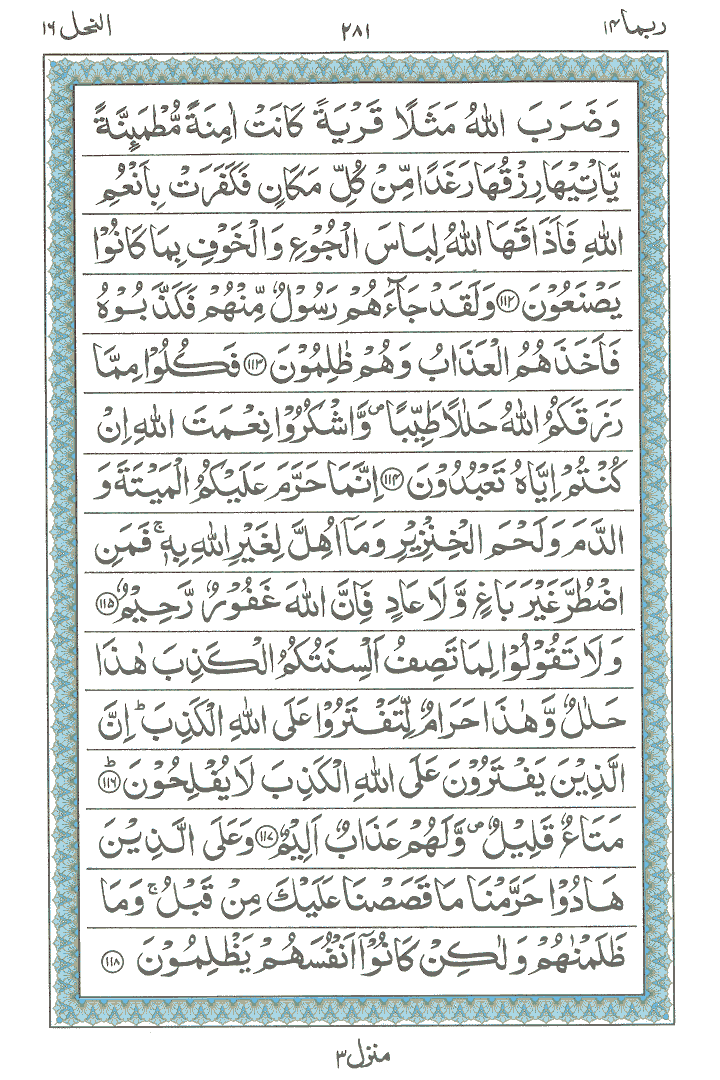 ربما ۱۴ ۲۸۱ النحل ۱۶
وَضَرَبَ اللّٰهُ مَثَلًا قَرْيَةً كَانَتْ اٰمِنَةً مُّطْمَىِٕنَّةً
يَّاْتِيْهَا رِزْقُهَا رَغَدًا مِّنْ كُلِّ مَكَانٍ فَكَفَرَتْ بِاَنْعُمِ
اللّٰهِ فَاَذَاقَهَا اللّٰهُ لِبَاسَ الْجُوْعِ وَالْخَوْفِ بِمَا كَانُوْا
يَصْنَعُوْنَ ۱۱۲ وَلَقَدْ جَآءَهُمْ رَسُوْلٌ مِّنْهُمْ فَكَذَّبُوْهُ
فَاَخَذَهُمُ الْعَذَابُ وَهُمْ ظٰلِمُوْنَ ۱۱۳ فَكُلُوْا مِمَّا
رَزَقَكُمُ اللّٰهُ حَلٰلًا طَيِّبًا ۪ وَّاشْكُرُوْا نِعْمَتَ اللّٰهِ اِنْ
كُنْتُمْ اِيَّاهُ تَعْبُدُوْنَ ۱۱۴ اِنَّمَا حَرَّمَ عَلَيْكُمُ الْمَيْتَةَ وَ
الدَّمَ وَلَحْمَ الْخِنْزِيْرِ وَمَاۤ اُهِلَّ لِغَيْرِ اللّٰهِ بِهٖ ۚ فَمَنِ
اضْطُرَّ غَيْرَ بَاغٍ وَّلَا عَادٍ فَاِنَّ اللّٰهَ غَفُوْرٌ رَّحِيْمٌ ۱۱۵
وَلَا تَقُوْلُوْا لِمَا تَصِفُ اَلْسِنَتُكُمُ الْكَذِبَ هٰذَا
حَلٰلٌ وَّهٰذَا حَرَامٌ لِّتَفْتَرُوْا عَلَى اللّٰهِ الْكَذِبَ ؕ اِنَّ
الَّذِيْنَ يَفْتَرُوْنَ عَلَى اللّٰهِ الْكَذِبَ لَا يُفْلِحُوْنَ ؕ ۱۱۶
مَتَاعٌ قَلِيْلٌ ۪ وَّلَهُمْ عَذَابٌ اَلِيْمٌ ۱۱۷ وَعَلَى الَّذِيْنَ
هَادُوْا حَرَّمْنَا مَا قَصَصْنَا عَلَيْكَ مِنْ قَبْلُ ۚ وَمَا
ظَلَمْنٰهُمْ وَلٰكِنْ كَانُوْۤا اَنْفُسَهُمْ يَظْلِمُوْنَ ۱۱۸
منزل ۳